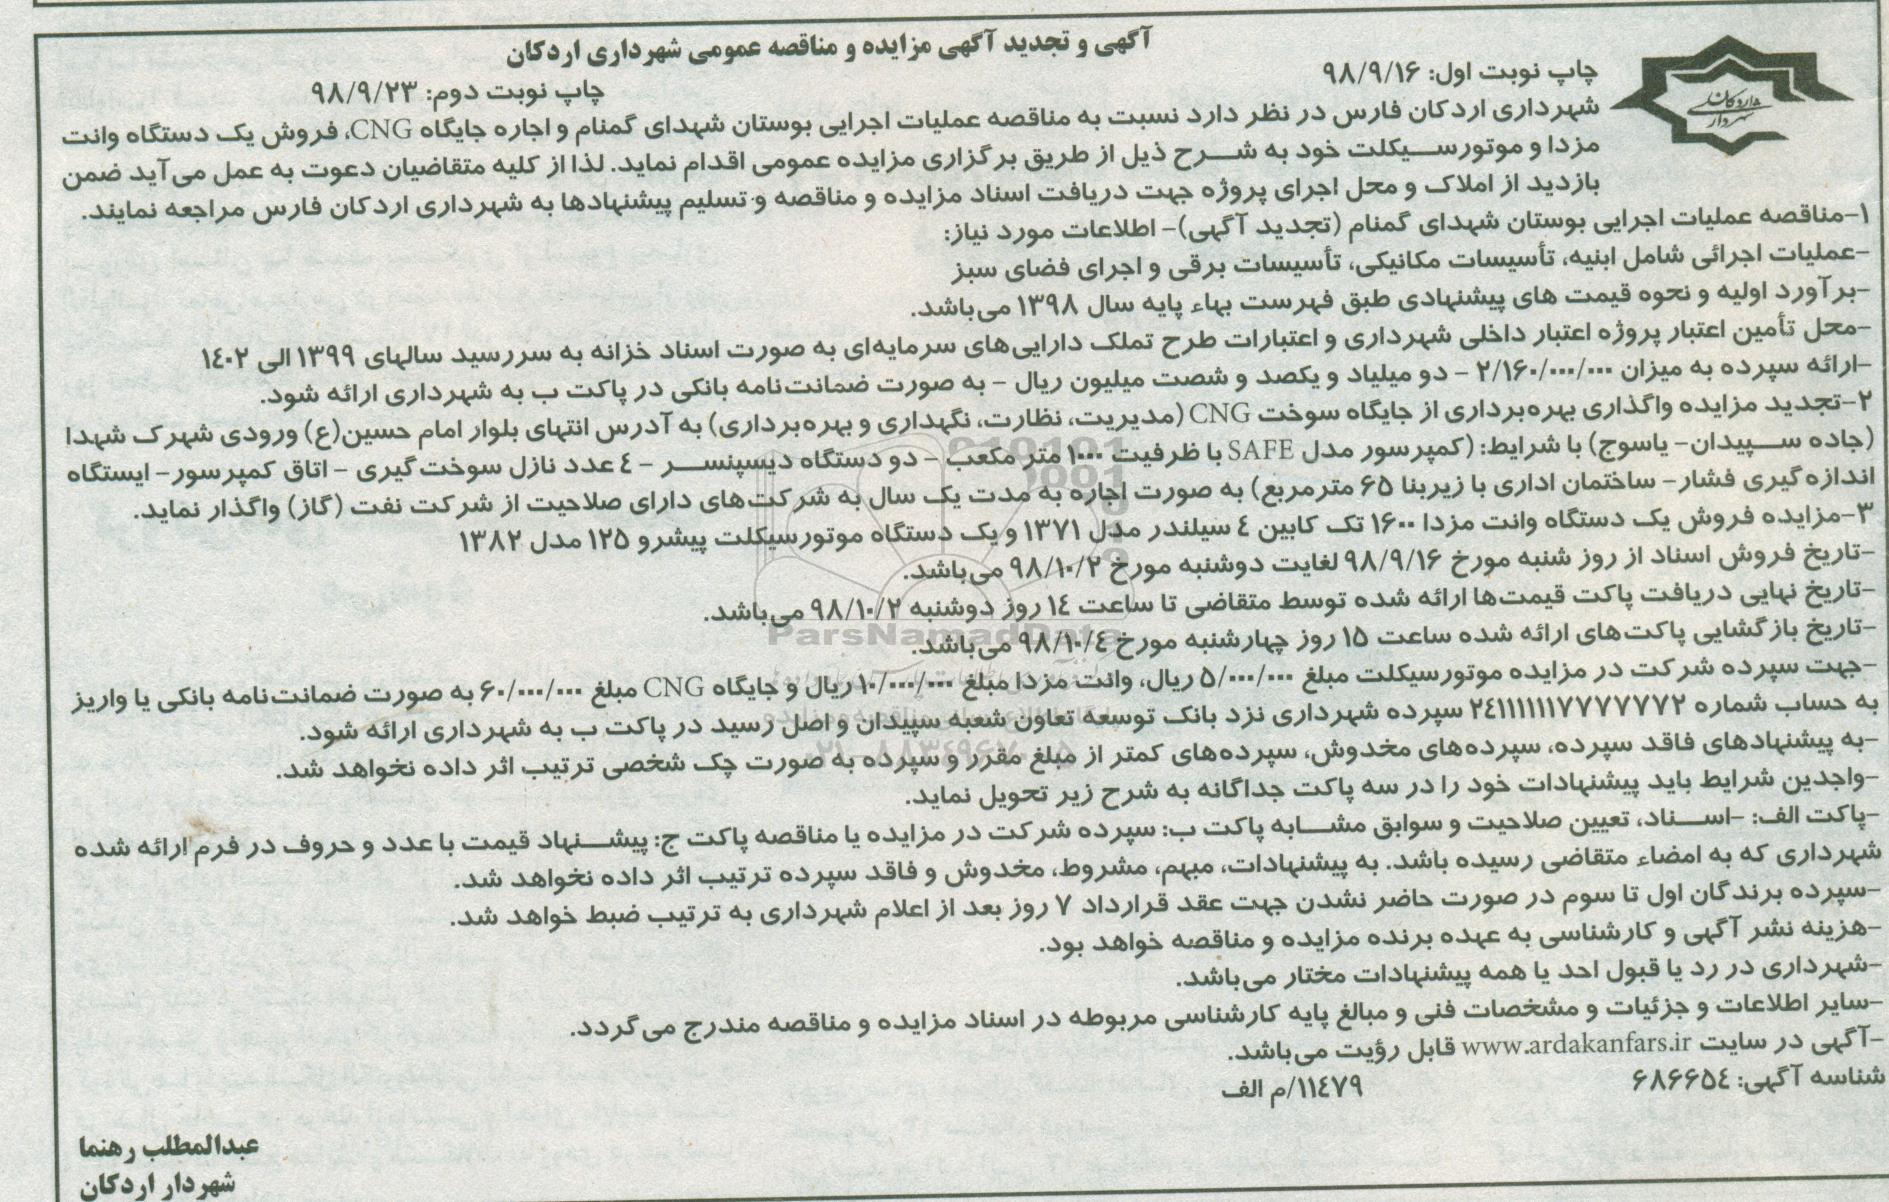 آگهی و تجدید آگهی مزایده و مناقصه عمومی شهرداری اردکان
چاپ نوبت اول: ۹۸/۹/۱۶
چاپ نوبت دوم: ۹۸/۹/۲۳
شهرداری اردکان فارس در نظر دارد نسبت به مناقصه عملیات اجرایی بوستان شهدای گمنام و اجاره جایگاه CNG، فروش یک دستگاه وانت
مزدا و موتورسیکلت خود به شرح ذیل از طریق برگزاری مزایده عمومی اقدام نماید. لذا از کلیه متقاضیان دعوت به عمل می‌آید ضمن
بازدید از املاک و محل اجرای پروژه جهت دریافت اسناد مزایده و مناقصه و تسلیم پیشنهادها به شهرداری اردکان فارس مراجعه نمایند.
۱-مناقصه عملیات اجرایی بوستان شهدای گمنام (تجدید آگهی)- اطلاعات مورد نیاز:
-عملیات اجرائی شامل ابنیه، تأسیسات مکانیکی، تأسیسات برقی و اجرای فضای سبز
-برآورد اولیه و نحوه قیمت های پیشنهادی طبق فهرست بهاء پایه سال ۱۳۹۸ می‌باشد.
-محل تأمین اعتبار پروژه اعتبار داخلی شهرداری و اعتبارات طرح تملک دارایی‌های سرمایه‌ای به صورت اسناد خزانه به سررسید سالهای ۱۳۹۹ الی ۱۴۰۲
-ارائه سپرده به میزان ۲/۱۶۰/۰۰۰/۰۰۰ - دو میلیاد و یکصد و شصت میلیون ریال - به صورت ضمانت‌نامه بانکی در پاکت ب به شهرداری ارائه شود.
۲-تجدید مزایده واگذاری بهره‌برداری از جایگاه سوخت CNG (مدیریت، نظارت، نگهداری و بهره‌برداری) به آدرس انتهای بلوار امام حسین(ع) ورودی شهرک شهدا
(جاده سپیدان- یاسوج) با شرایط: (کمپرسور مدل SAFE با ظرفیت ۱۰۰۰ متر مکعب - دو دستگاه دیسپنسر - ۴ عدد نازل سوخت گیری - اتاق کمپرسور- ایستگاه
اندازه‌گیری فشار- ساختمان اداری با زیربنا ۶۵ مترمربع) به صورت اجاره به مدت یک سال به شرکت‌های دارای صلاحیت از شرکت نفت (گاز) واگذار نماید.
۳-مزایده فروش یک دستگاه وانت مزدا ۱۶۰۰ تک کابین ۴ سیلندر مدل ۱۳۷۱ و یک دستگاه موتورسیکلت پیشرو ۱۲۵ مدل ۱۳۸۲
-تاریخ فروش اسناد از روز شنبه مورخ ۹۸/۹/۱۶ لغایت دوشنبه مورخ ۹۸/۱۰/۲ می‌باشد.
-تاریخ نهایی دریافت پاکت قیمت‌ها ارائه شده توسط متقاضی تا ساعت ۱۴ روز دوشنبه ۹۸/۱۰/۲ می‌باشد.
-تاریخ بازگشایی پاکت‌های ارائه شده ساعت ۱۵ روز چهارشنبه مورخ ۹۸/۱۰/۴ می‌باشد.
-جهت سپرده شرکت در مزایده موتورسیکلت مبلغ ۵/۰۰۰/۰۰۰ ریال، وانت مزدا مبلغ ۱۰/۰۰۰/۰۰۰ ریال و جایگاه CNG مبلغ ۶۰/۰۰۰/۰۰۰ به صورت ضمانت‌نامه بانکی یا واریز
به حساب شماره ۲۴۱۱۱۱۱۱۷۷۷۷۷۷۲ سپرده شهرداری نزد بانک توسعه تعاون شعبه سپیدان و اصل رسید در پاکت ب به شهرداری ارائه شود.
-به پیشنهادهای فاقد سپرده، سپرده‌های مخدوش، سپرده‌های کمتر از مبلغ مقرر و سپرده به صورت چک شخصی ترتیب اثر داده نخواهد شد.
-واجدین شرایط باید پیشنهادات خود را در سه پاکت جداگانه به شرح زیر تحویل نماید.
-پاکت الف: -اسناد، تعیین صلاحیت و سوابق مشابه پاکت ب: سپرده شرکت در مزایده یا مناقصه پاکت ج: پیشنهاد قیمت با عدد و حروف در فرم ارائه شده
شهرداری که به امضاء متقاضی رسیده باشد. به پیشنهادات، مبهم، مشروط، مخدوش و فاقد سپرده ترتیب اثر داده نخواهد شد.
-سپرده برندگان اول تا سوم در صورت حاضر نشدن جهت عقد قرارداد ۷ روز بعد از اعلام شهرداری به ترتیب ضبط خواهد شد.
-هزینه نشر آگهی و کارشناسی به عهده برنده مزایده و مناقصه خواهد بود.
-شهرداری در رد یا قبول احد یا همه پیشنهادات مختار می‌باشد.
-سایر اطلاعات و جزئیات و مشخصات فنی و مبالغ پایه کارشناسی مربوطه در اسناد مزایده و مناقصه مندرج می‌گردد.
-آگهی در سایت www.ardakanfars.ir قابل رؤیت می‌باشد.
شناسه آگهی: ۶۸۶۶۵۴
۱۱۴۷۹/م الف
عبدالمطلب رهنما
شهردار اردکان
ParsNamadData
۰۲۱-۸۸۳۴۹۶۷۰-۵